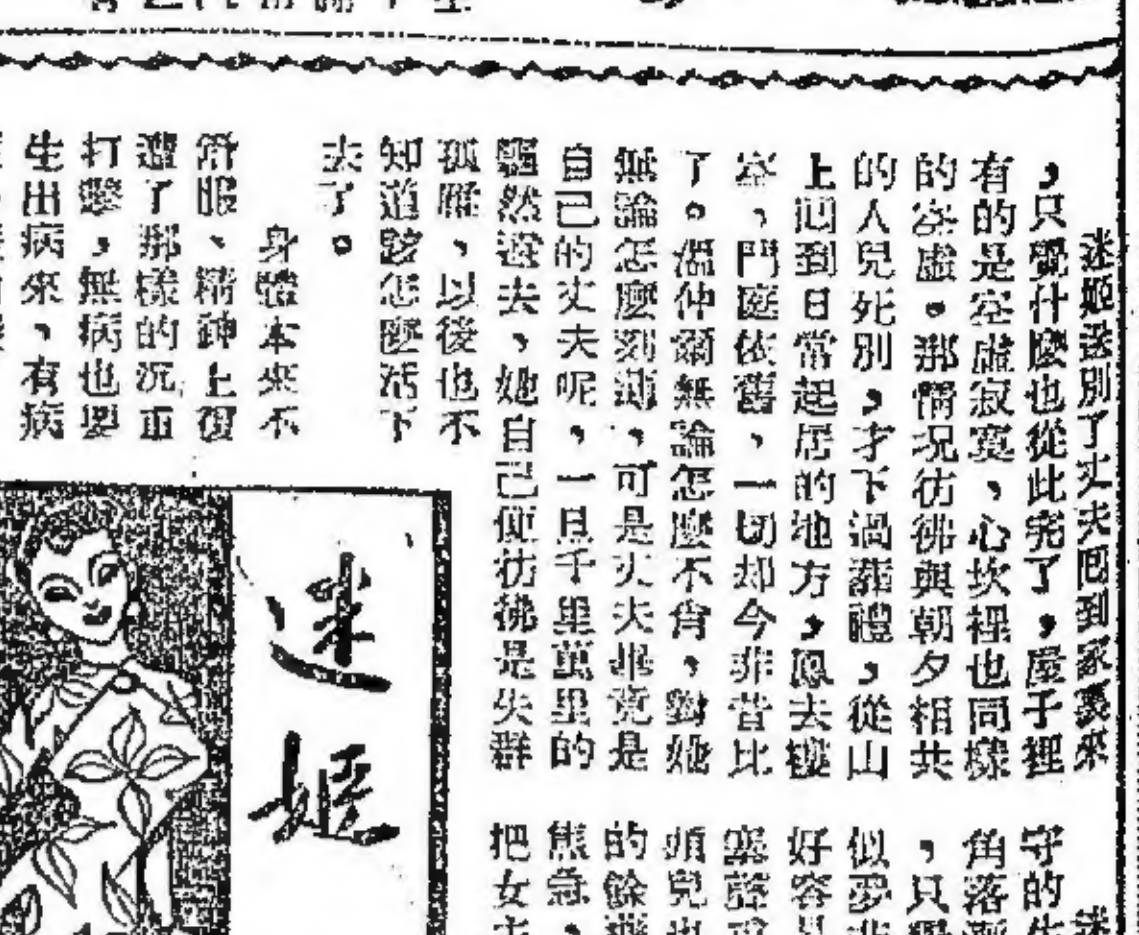 迷姬送別了丈夫囘到家裏來
，只覺什麼也從此完了，屋子裡
有的是空虛寂寞，心坎裡也同樣
的空虛。那情况彷彿與朝夕相共
的人兒死別，才下過葬禮，從山
上囘到日常起居的地方，鳳去樓
空，門庭依舊，一切却今非昔比
了。溫仲爾無論怎麼不肯，對她
無論怎麼刻薄，可是丈夫畢竟是
自己的丈夫呢，一旦千里萬里的
驅然遠去，她自己便彷彿是失群
孤雁，以後也不
知道該怎麼活下
去了。
身體本來不
舒服、精神上復
遭了那樣的沉重
打擊，無病也要
生出病來，有病
迷姬
守的
角落
，只
似夢
好容
的餘
熊急，
把女